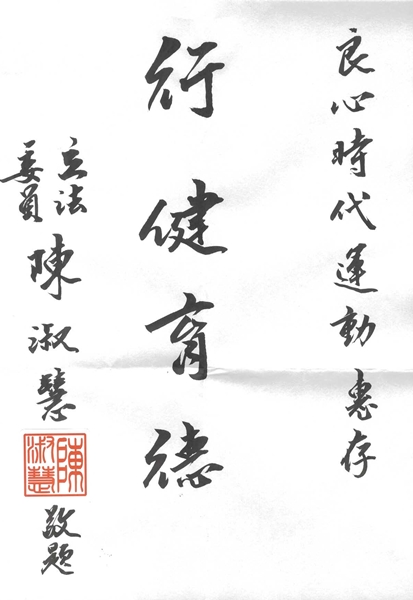 良心時代運動 惠存
行健育德
立法委員 陳淑慧 敬題
陳淑慧